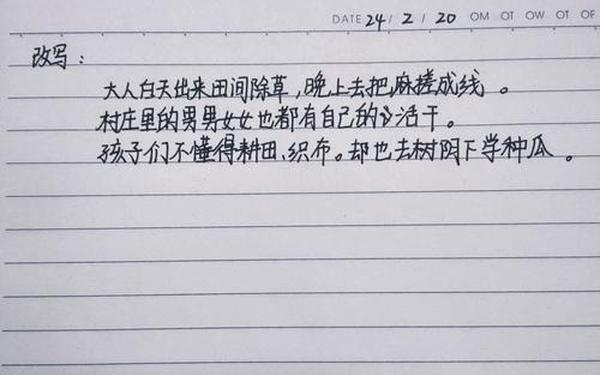 DATE 24 / 2 / 20 OM OT OW OT OF
改写：
大人白天出来田间除草，晚上去把麻搓成线。
村庄里的男男女女也都有自己的活干。
孩子们不懂得耕田、织布。却也去树阴下学种瓜。